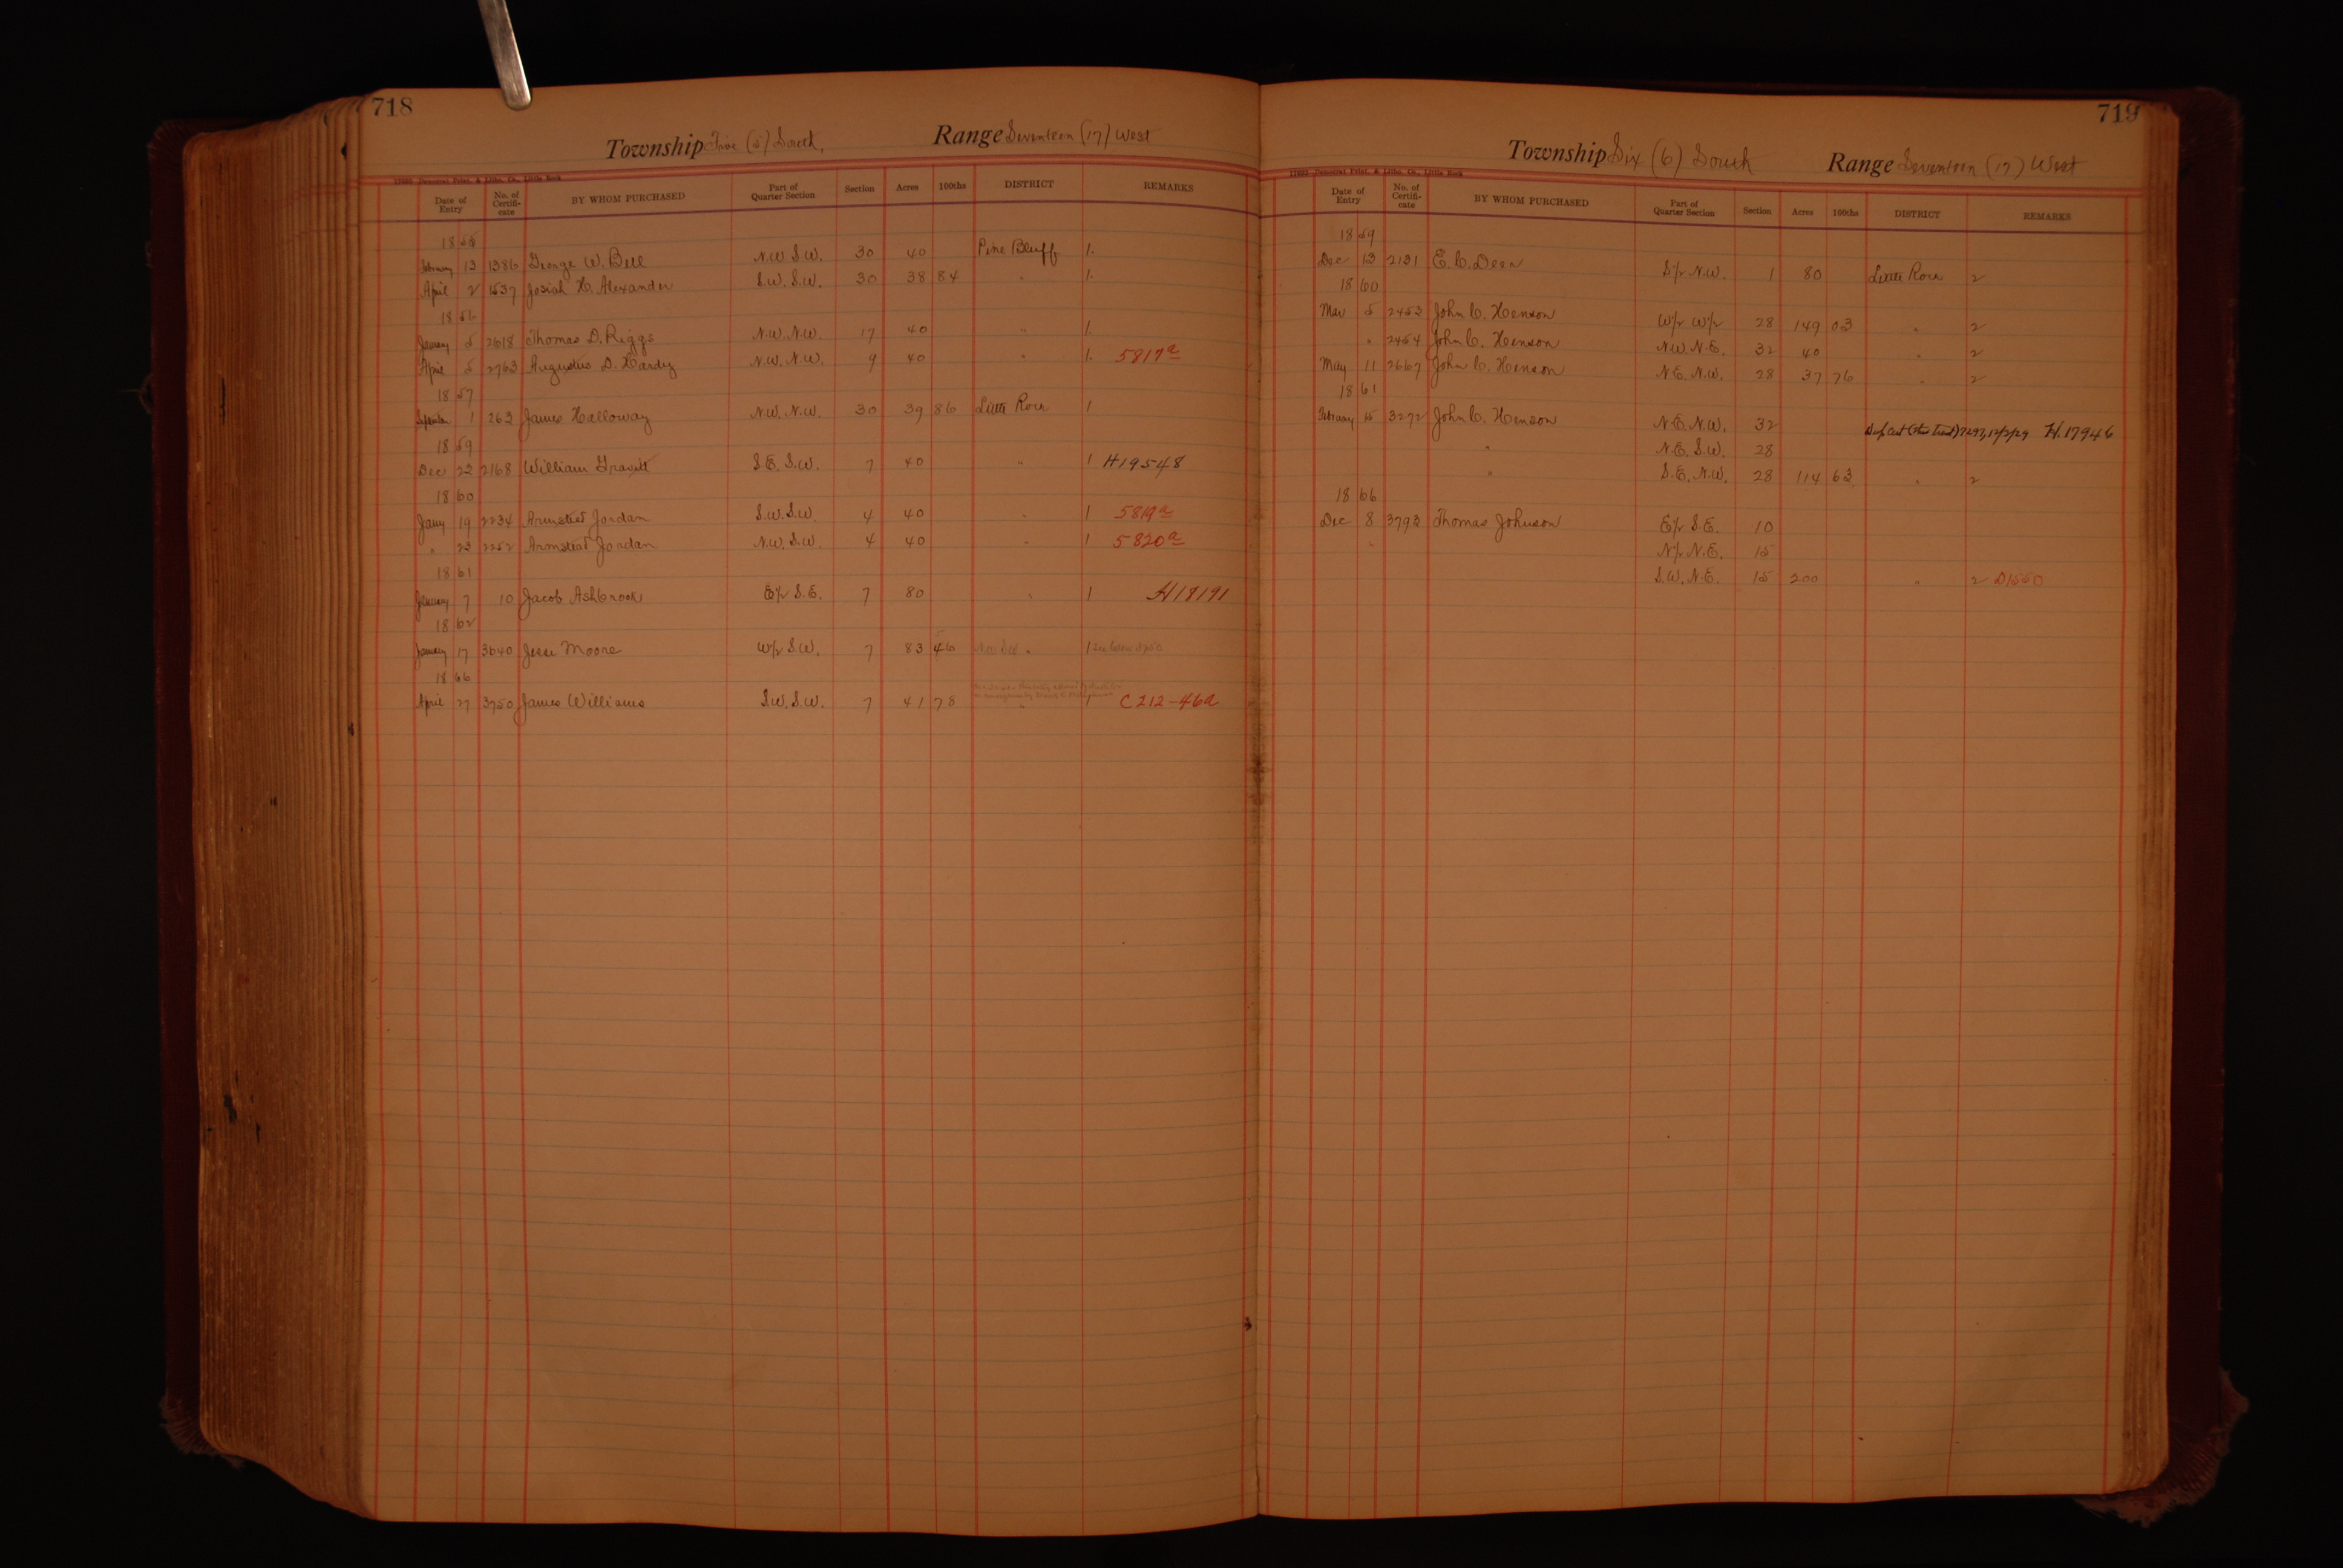 718
Township Five (5) South, Range Seventeen (17) West
Democrat Print. & Litho. Co., Little Rock
Date of Entry No. of Certificate BY WHOM PURCHASED Part of Quarter Section Section Acres 100ths DISTRICT REMARKS
1855
February 13 1386 George W. Bell N.W. S.W. 30 40 Pine Bluff 1.
April 2 1537 Josiah H. Alexander S.W. S.W. 30 38 84 " 1.
1856
January 5 2618 Thomas D. Riggs N.W. N.W. 17 40 " 1.
April 5 2763 Augustus D. Hardy N.W. N.W. 9 40 " 1. 5817a
1857
September 1 263 James Halloway N.W. N.W. 30 39 86 Little Rock 1
1859
Dec 22 2168 William Gravitt S.E. S.W. 7 40 " 1 H19548
1860
Jany 19 2234 Armstead Jordan S.W. S.W. 4 40 " 1 5819a
" 23 2252 Armstead Jordan N.W. S.W. 4 40 " 1 5820a
1861
January 7 10 Jacob Ashbrook E/2 S.E. 7 80 " 1 H18191
1862
January 17 3640 Jesse Moore W/2 S.W. 7 83 56 " 1 See below 3750
1866
April 27 3750 James Williams S.W. S.W. 7 41 78 " 1 C212-46a
719
Township Six (6) South Range Seventeen (17) West
Democrat Print. & Litho. Co., Little Rock
Date of Entry No. of Certificate BY WHOM PURCHASED Part of Quarter Section Section Acres 100ths DISTRICT REMARKS
1859
Dec 13 2131 E. C. Dean S/2 N.W. 1 80 Little Rock 2
1860
Mar 5 2453 John C. Henson W/2 W/2 28 149 03 " 2
" 2454 John C. Henson N.W. N.E. 32 40 " 2
May 11 2667 John C. Henson N.E. N.W. 28 37 76 " 2
1861
February 15 3272 John C. Henson N.E. N.W. 32 Dup Cert (this Tract) 7297, 12/2/29 H.17946
" N.E. S.W. 28
" S.E. N.W. 28 114 63 " 2
1866
Dec 8 3793 Thomas Johnson E/2 S.E. 10
" N/2 N.E. 15
S.W. N.E. 15 200 " 2 D1550